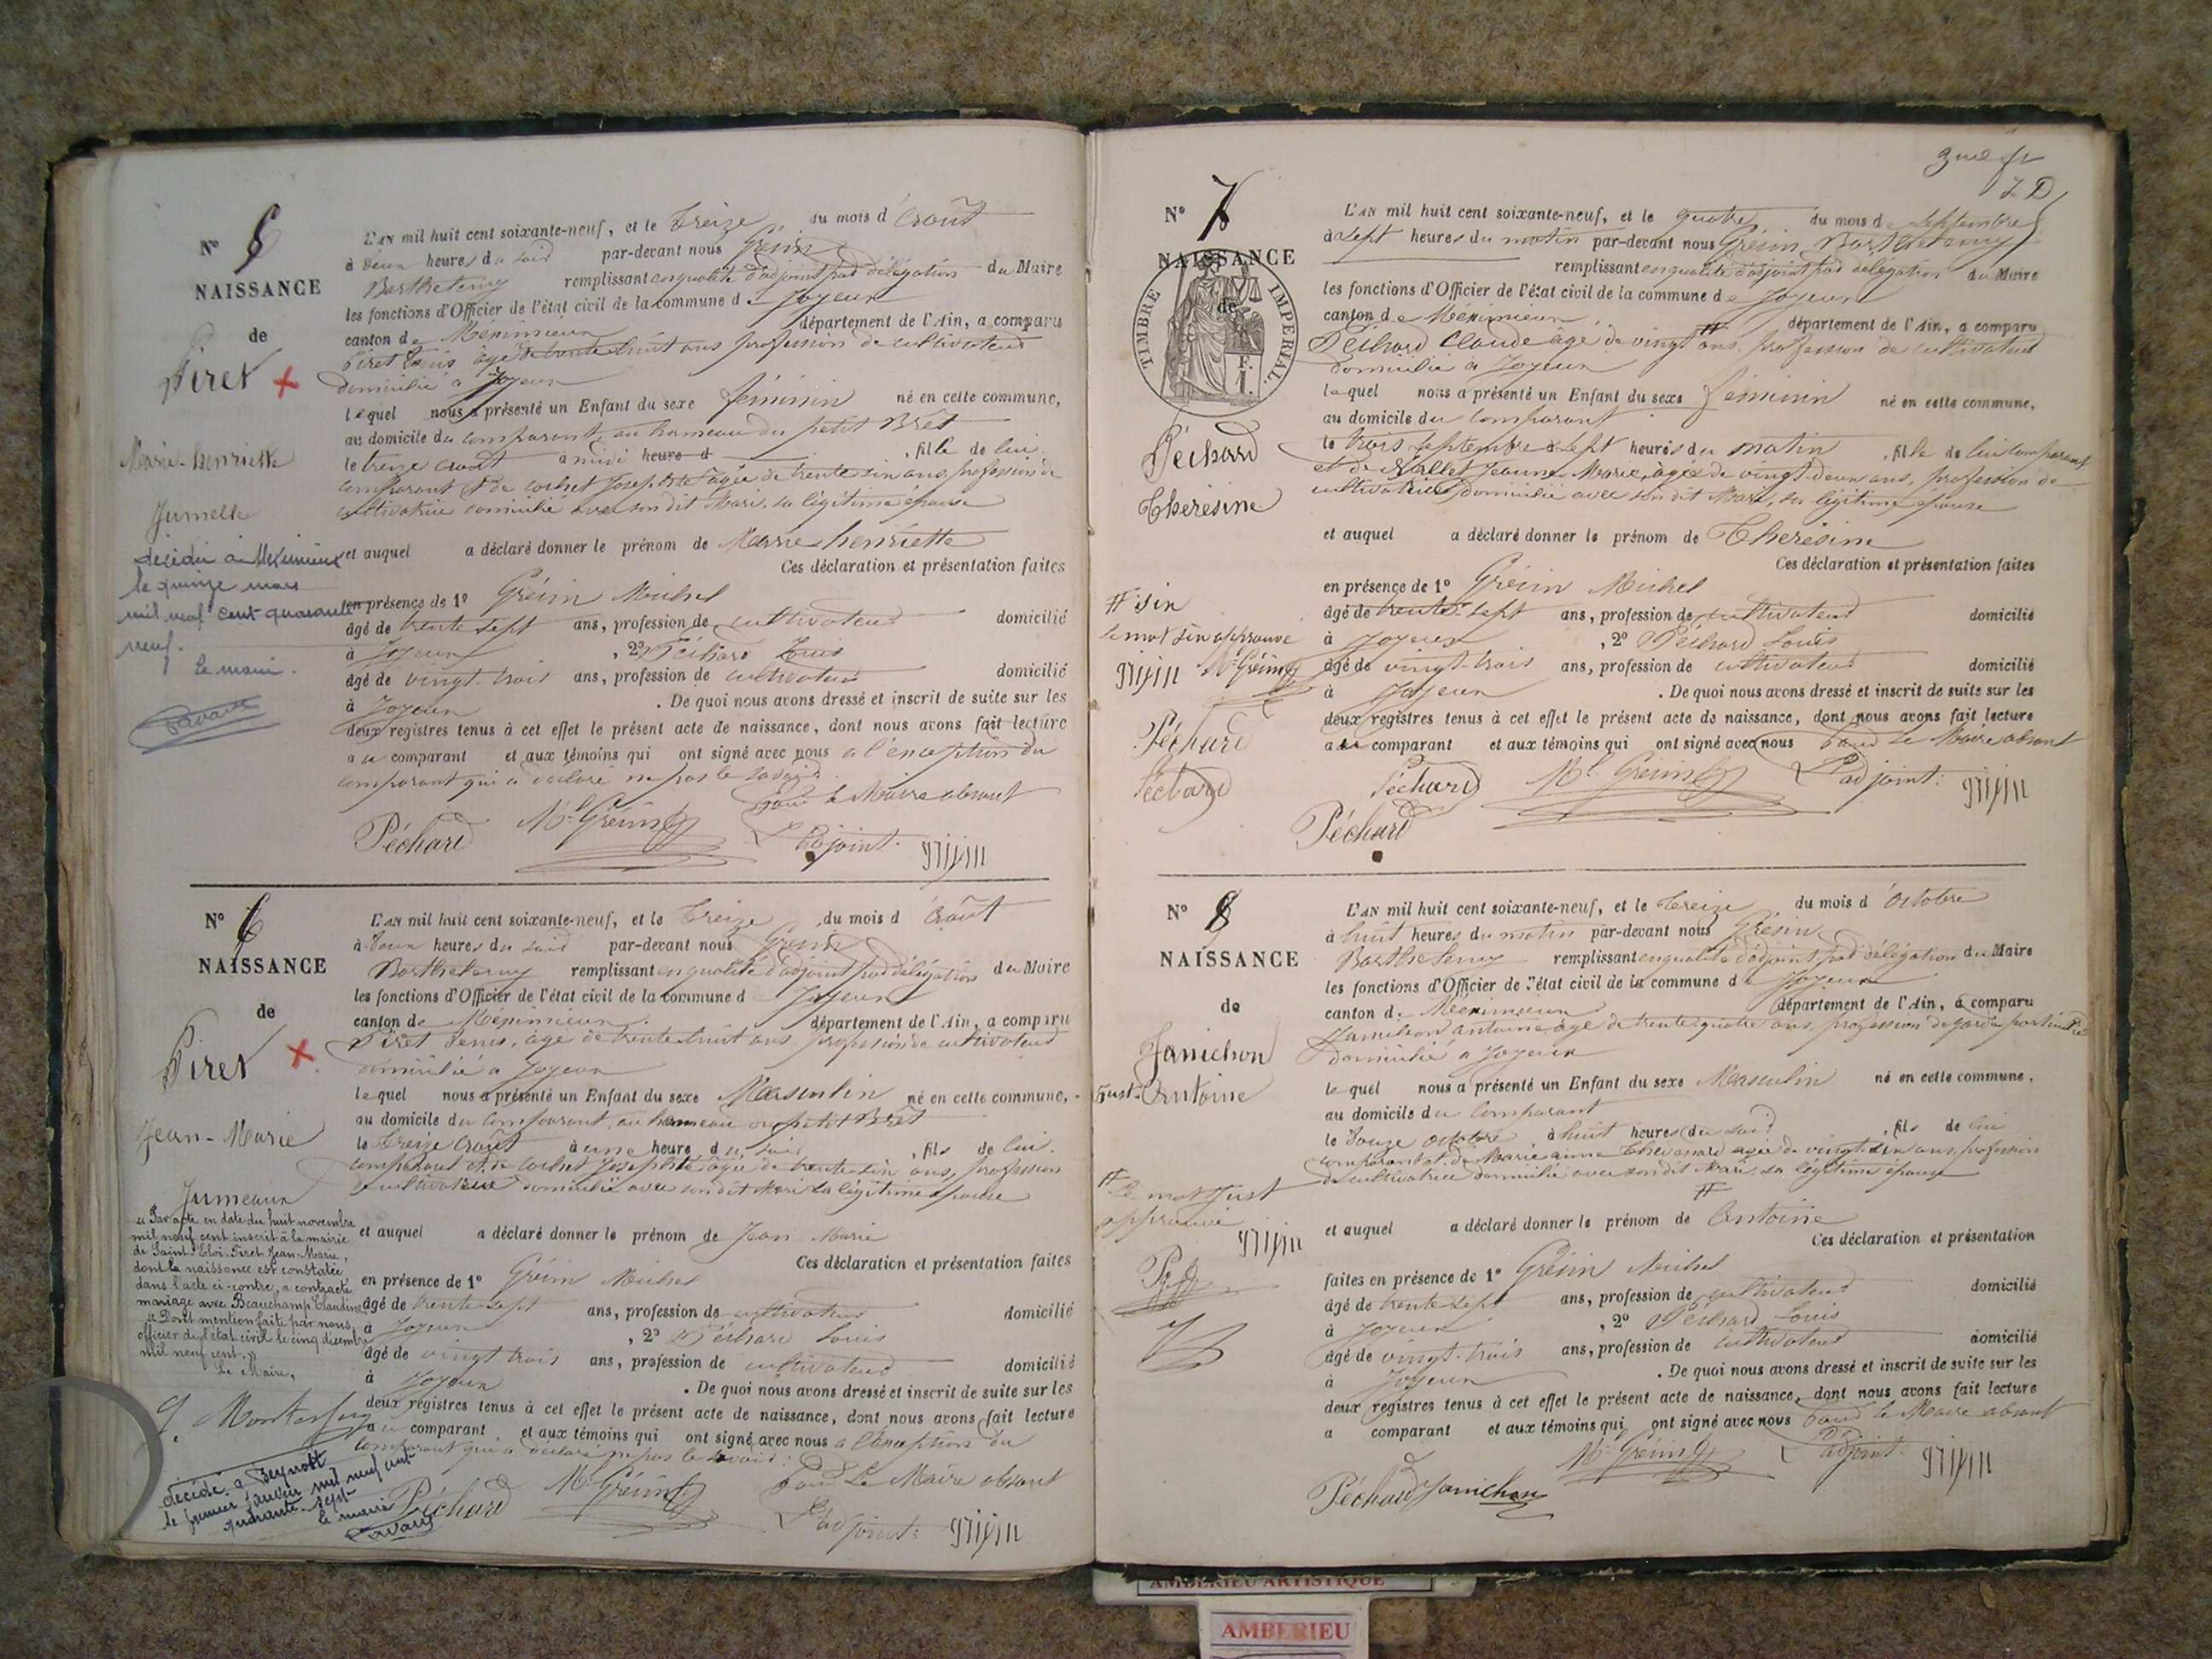 N° 5
NAISSANCE
de
Piret
Marie-henriette
Jumelle
décédée à Meximieux
le quinze mars
mil neuf cent quarante
neuf.
le maire.
L'AN mil huit cent soixante-neuf, et le treize du mois d'août
à deux heures du soir par-devant nous Grésin
Barthelemy remplissant en qualité d'adjoint par délégation du Maire
les fonctions d'Officier de l'état civil de la commune de Joyeux
canton de Meximieux département de l'Ain, a comparu
Piret Denis âgé de trente huit ans profession de cultivateur
domicilié à Joyeux
lequel nous a présenté un Enfant du sexe féminin né en cette commune,
au domicile du comparant, au hameau du petit Bret
le treize août à midi heure d , fille de lui
comparant et de cochet Josephte âgée de trente six ans, profession de
cultivatrice domicilié avec son dit Mari, sa légitime épouse
et auquel a déclaré donner le prénom de Marie henriette
Ces déclaration et présentation faites
en présence de 1° Grésin Michel
âgé de trente sept ans, profession de cultivateur domicilié
à Joyeux , 2° Péchard Louis
âgé de vingt-trois ans, profession de cultivateur domicilié
à Joyeux . De quoi nous avons dressé et inscrit de suite sur les
deux registres tenus à cet effet le présent acte de naissance, dont nous avons fait lecture
au comparant et aux témoins qui ont signé avec nous a l'exception du
comparant qui a déclaré ne pas le savoir.
Péchard Ml Grésin pour le Maire absent
L'adjoint.
N° 6
NAISSANCE
de
Piret
Jean-Marie
Jumeaux
"Par acte en date du huit novembre
mil neuf cent inscrit à la mairie
de Saint-Eloi. Piret Jean-Marie,
dont la naissance est constatée
dans l'acte ci-contre, a contracté
mariage avec Beauchamp Claudine
"Dont mention faite par nous
officier de l'état civil le cinq décembre
mil neuf cent."
Le Maire,
décédé à Beynost
le premier janvier mil neuf cent
quarante-sept
le maire
L'AN mil huit cent soixante-neuf, et le treize du mois d'août
à deux heures du soir par-devant nous Grésin
Barthelemy remplissant en qualité d'adjoint par délégation du Maire
les fonctions d'Officier de l'état civil de la commune d Joyeux
canton de Meximieux. département de l'Ain, a comparu
Piret Denis, âgé de trente huit ans profession de cultivateur
domicilié à Joyeux
lequel nous a présenté un Enfant du sexe Masculin né en cette commune,
au domicile du comparant, au hameau du petit Bret
le treize août à une heure du soir , fils de lui
comparant et de cochet Josephte âgée de trente six ans, profession
de cultivatrice domicilié avec son dit Mari sa légitime épouse
et auquel a déclaré donner le prénom de Jean Marie
Ces déclaration et présentation faites
en présence de 1° Grésin Michel
âgé de trente sept ans, profession de cultivateur domicilié
à Joyeux , 2° Péchard Louis
âgé de vingt trois ans, profession de cultivateur domicilié
à Joyeux . De quoi nous avons dressé et inscrit de suite sur les
deux registres tenus à cet effet le présent acte de naissance, dont nous avons fait lecture
au comparant et aux témoins qui ont signé avec nous a l'exception du
comparant qui a déclaré ne pas le savoir.
Péchard Ml Grésin pour Le Maire absent
L'adjoint:
N° 7
NAISSANCE
de
TIMBRE IMPERIAL.
Péchard
Thérésine
# six
le mot six approuvé
Ml Grésin
Péchard
Péchard
L'AN mil huit cent soixante-neuf, et le quatre du mois de Septembre
à Sept heures du matin par-devant nous Grésin Barthelemy
remplissant en qualité d'adjoint par délégation du Maire
les fonctions d'Officier de l'état civil de la commune de Joyeux
canton de Meximieux département de l'Ain, a comparu
Péchard Claude âgé de vingt # ans profession de cultivateur
domicilié à Joyeux
lequel nous a présenté un Enfant du sexe féminin né en cette commune,
au domicile du comparant
le trois septembre à sept heures du matin , fille de lui comparant
et de Jeanne Marie, âgée de vingt-deux ans, profession de
cultivatrice domicilié avec son dit Mari, sa légitime épouse
et auquel a déclaré donner le prénom de Thérésine
Ces déclaration et présentation faites
en présence de 1° Grésin Michel
âgé de trente-sept ans, profession de cultivateur domicilié
à Joyeux , 2° Péchard Louis
âgé de vingt-trois ans, profession de cultivateur domicilié
à Joyeux . De quoi nous avons dressé et inscrit de suite sur les
deux registres tenus à cet effet le présent acte de naissance, dont nous avons fait lecture
au comparant et aux témoins qui ont signé avec nous pour le Maire absent
Péchard Ml Grésin L'adjoint:
Péchard
N° 8
NAISSANCE
de
Janichon
Just-Antoine
# le mot Just
approuvé
L'AN mil huit cent soixante-neuf, et le treize du mois d'octobre
à huit heures du matin par-devant nous Grésin
Barthelemy remplissant en qualité d'adjoint par délégation du Maire
les fonctions d'Officier de l'état civil de la commune de Joyeux
canton de Meximieux département de l'Ain, a comparu
Janichon antoine âgé de trente quatre ans, profession de garde particulier
domicilié à Joyeux
lequel nous a présenté un Enfant du sexe Masculin né en cette commune,
au domicile du comparant
le douze octobre à huit heures du soir , fils de lui
comparant et de Marie anne âgée de vingt-six ans, profession
de cultivatrice domicilié avec son dit Mari, sa légitime épouse
et auquel a déclaré donner le prénom de # Antoine
Ces déclaration et présentation
faites en présence de 1° Grésin Michel
âgé de trente sept ans, profession de cultivateur domicilié
à Joyeux , 2° Péchard Louis
âgé de vingt-trois ans, profession de cultivateur domicilié
à Joyeux . De quoi nous avons dressé et inscrit de suite sur les
deux registres tenus à cet effet le présent acte de naissance, dont nous avons fait lecture
a comparant et aux témoins qui ont signé avec nous pour le Maire absent
Péchard Janichon Ml Grésin L'adjoint:
AMBERIEU ARTISTIQUE
AMBERIEU